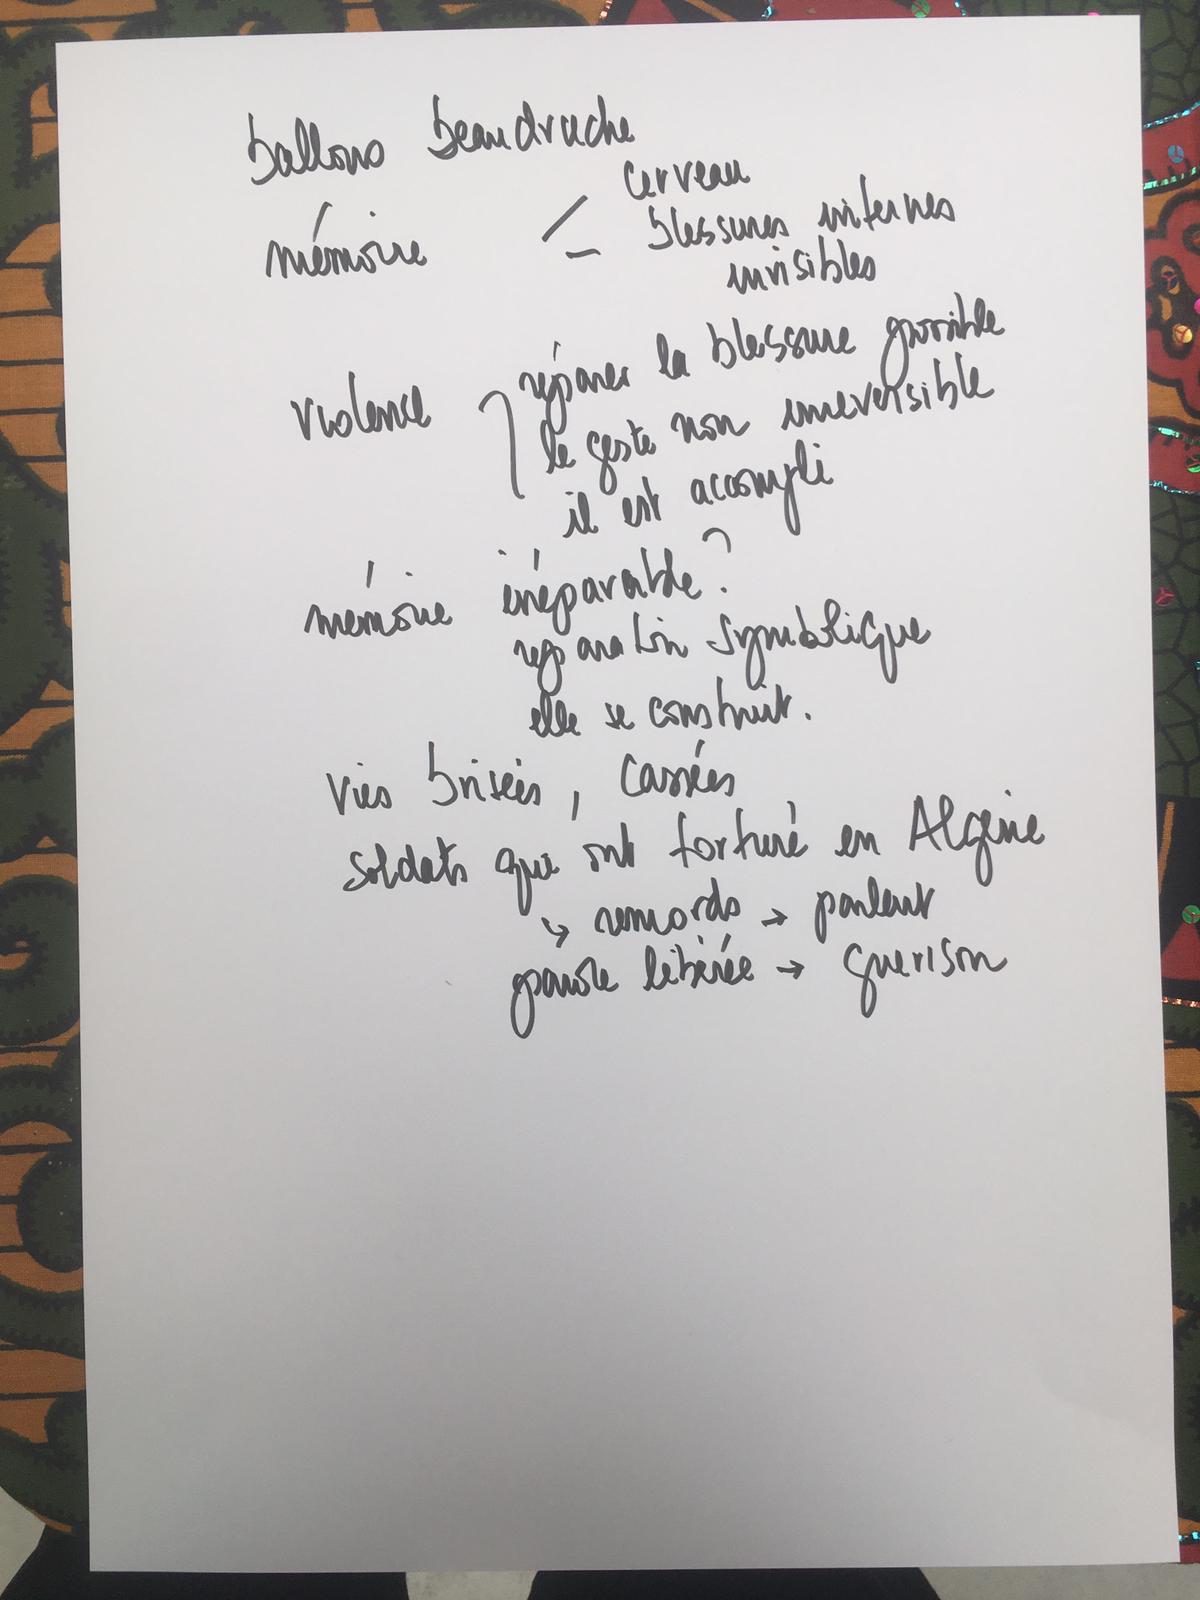 ballons beaudruche
mémoire
cerveau
blessures internes
invisibles
violence
réparer la blessure possible
le geste non irreversible
il est accompli
mémoire irréparable ?
reparation symbolique
elle se construit.
vies brisées, cassées
soldats qui ont torturé en Algérie
↳ remords → parlent
parole libérée → guerison